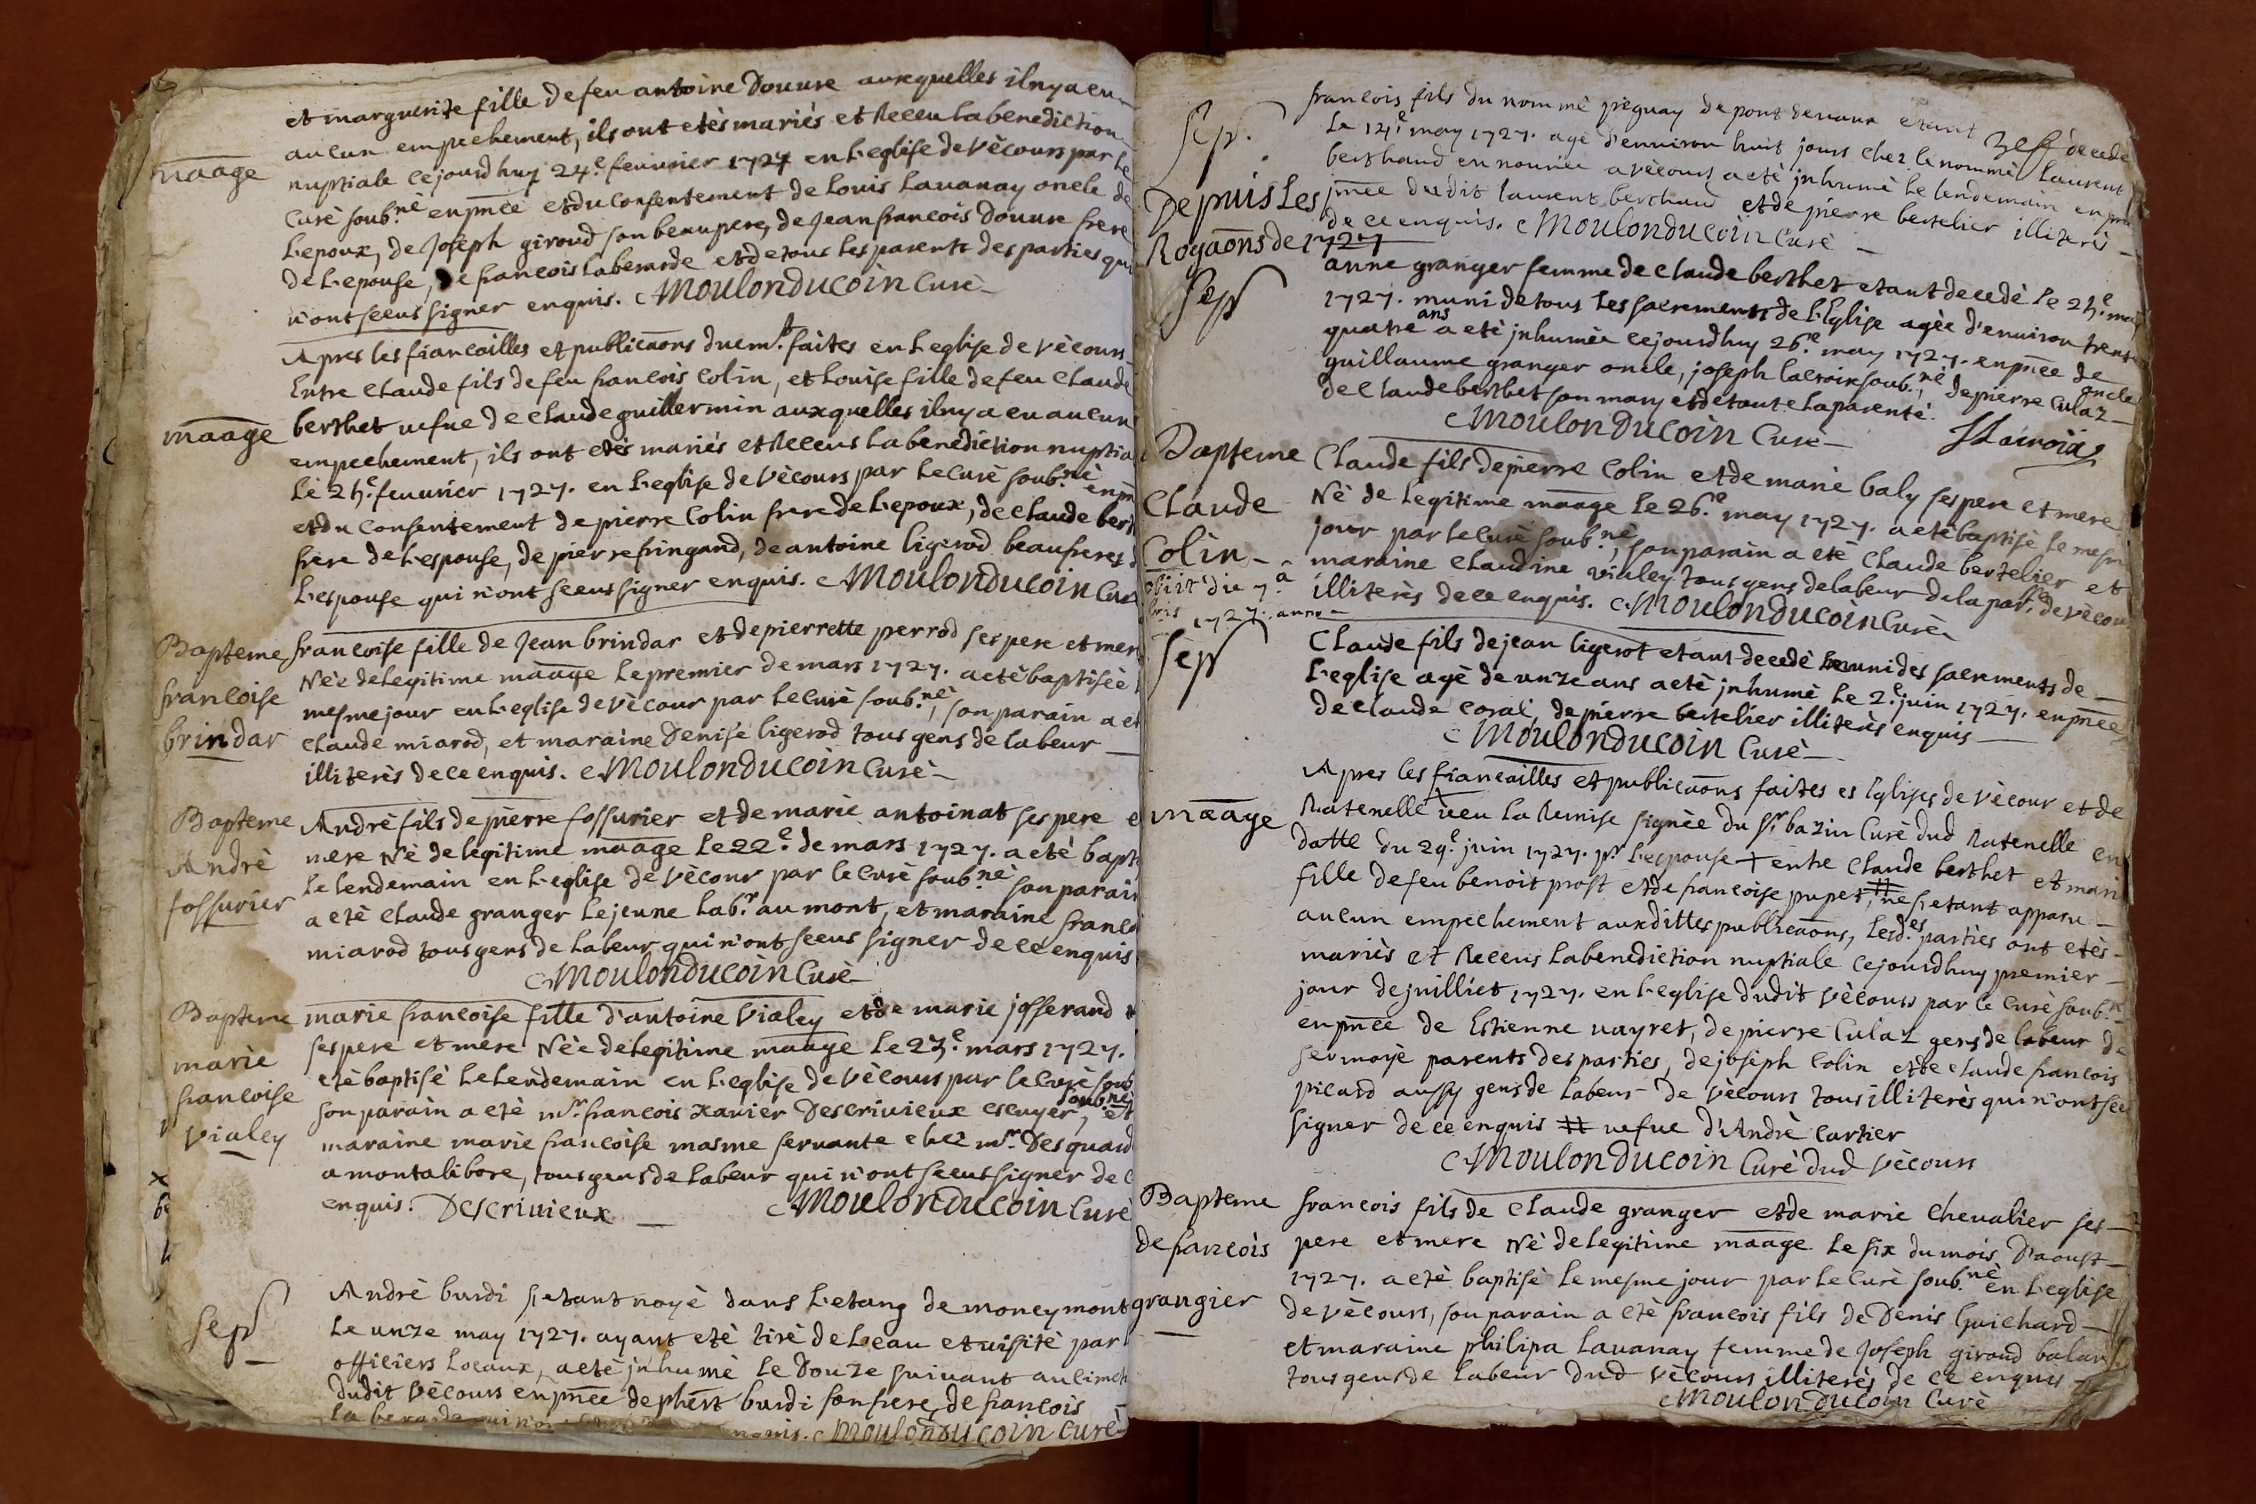 et marguerite fille de feu antoine Douure auxquelles il ny a eu
aucun empechement, ils ont etès mariès et Receu la benediction
maage
nuptiale cejourdhuy 24.e feuurier 1727 en L'eglise de Vècours par Le
Curè soub.nè en pn̄ce et du consentement de Louis Lauanay oncle de
L'epoux, de Joseph giroud son beaupere, de Jean francois Douure frere
de L'epouse, de francois Laberarde et de tous les parents des parties qui
n'ont sceus signer enquis. MoulonDucoin Curè
Apres les fiancailles et publicaōns duem.t faites en L'eglise de Vècours
Entre claude fils de feu francois Colin, et Louise fille de feu claude
maage
berthet uefue de claude guillermin auxquelles il ny a eu aucun
empechement, ils ont etès mariès et Receus La benediction nuptia
Le 25.e feuurier 1727. en L'eglise de Vècours par Le Curè soub.nè en pn̄
et du Consentement de pierre Colin frere de L'epoux, de claude bert
frere de L'espouse, de pierre fringand, de antoine ligerod beaufreres d
L'espouse qui n'ont sceus signer enquis. MoulonDucoin Curè
Bapteme
francoise
brindar
francoise fille de Jean brindar et de pierrette perrod ses pere et mere
Nèe de Legitime maage Le premier de mars 1727. a etè baptisèe
mesme jour en L'eglise de Vècour par Le Curè soub.nè, son parain a et
claude miarod, et maraine Denise ligerod tous gens de labeur
illiterès de ce enquis. MoulonDucoin Curè
Bapteme
Andrè
fossurier
Andrè fils de pierre fossurier et de marie antoinat ses pere e
mere Nè de legitime maage Le 22.e de mars 1727. a etè bapt
Le lendemain en L'eglise de Vècour par le Curè soub.nè son parain
a etè claude granger Le jeune Lab.r au mont, et maraine franco
miarod tous gens de Labeur qui n'ont sceus signer de ce enquis
MoulonDucoin Curè
Bapteme
marie
francoise
vialey
marie francoise fille d'antoine Vialey et de marie josserand
ses pere et mere Nèe de legitime maage Le 23.e mars 1727.
etè baptisè Le Lendemain en L'eglise de Vècours par le Curè soub
son parain a etè m.r francois Xauier Descriuieux escuyer, soub.nè et
maraine marie francoise masme seruante chez m.r Desquard
a montalibore, tous gens de Labeur qui n'ont sceus signer de c
enquis. Descriuieux MoulonDucoin Curè
sep
Andrè burdi s'etant noyè dans L'etang de moneymont
Le unze may 1727. ayant etè tirè de L'eau et uisitè par
officiers Locaux, a etè inhumè Le Douze suiuant au cimet
dudit Vècours en pn̄ce de phērt burdi son frere, de francois
Laberarde enquis. MoulonDucoin Curè
sep.
francois fils du nommè piquay de pont deuaux etant decede
Le 14.e may 1727. agè d'enuiron huit jours chez le nommè Laurent
berthaud en nourice a vècours a etè inhumè Le lendemain en pn̄
pn̄ce dudit laurent berthaud et de pierre bertelier illiterès
de ce enquis. MoulonDucoin Curè
Depuis Les
Rogaōns de 1727
Sep
anne granger femme de claude berthet etant decedè Le 25.e may
1727. muni de tous les sacrements de L'Eglise agèe d'enuiron trente
quatre ans a etè inhumèe cejourdhuy 26.e may 1727. en pn̄ce de
guillaume granger oncle, joseph lacroix soub.nè, de pierre Culaz oncle
de claude berthet son mary et de toute La parentè.
MoulonDucoin Curè JLacroix
Bapteme
Claude
Colin
obiit die 7.a
bris 1727. anno
Claude fils de pierre Colin et de marie baly ses pere et mere
Nè de Legitime maage Le 26.e may 1727. a etè baptisè Le mesme
jour par le Curè soub.nè, son parain a etè claude bertelier et
maraine claudine Vialey tous gens de labeur de la par.sse de vècou
illiterès de ce enquis. MoulonDucoin Curè
Sep
Claude fils de jean ligerot etant decedè muni des sacrements de
L'eglise agè de unze ans a etè inhumè Le 2.e juin 1727. en pn̄ce
de claude coral, de pierre bertelier illiterès enquis
MoulonDucoin Curè
maage
Apres les fiancailles et publicaōns faites es Eglises de Vècour et de
Ratenelle ueu La Remise signèe du S.r bazin Curè dud Ratenelle en
datte du 29.e juin 1727. p.r L'espouse + entre claude berthet et mari
fille de feu benoit prost et de francoise pupet, # ne s'etant apparu
aucun empechement aux dittes publicaōns, Lesd.es parties ont etès
mariès et Receus La benediction nuptiale cejourdhuy premier
jour de juilliet 1727. en L'eglise dudit Vècours par le Curè soub.n
en pn̄ce de Estienne uayret, de pierre Culaz gens de labeur de
sermoyè parents des parties, de joseph Colin et de claude francois
picard aussy gens de Labeur de Vècours tous illiterès qui n'ont sce
signer de ce enquis # uefue d'Andrè Cartier
MoulonDucoin Curè dud Vècours
Bapteme
de francois
grangier
francois fils de claude granger et de marie Cheualier ses
pere et mere Nè de Legitime maage Le six du mois D'aoust
1727. a etè baptisè Le mesme jour par Le Curè soub.nè en L'eglise
de Vècours, son parain a etè francois fils de Denis Guichard
et maraine philipa Lauanay femme de Joseph giroud
tous gens de Labeur dud Vècours illiterès de ce enquis
MoulonDucoin Curè